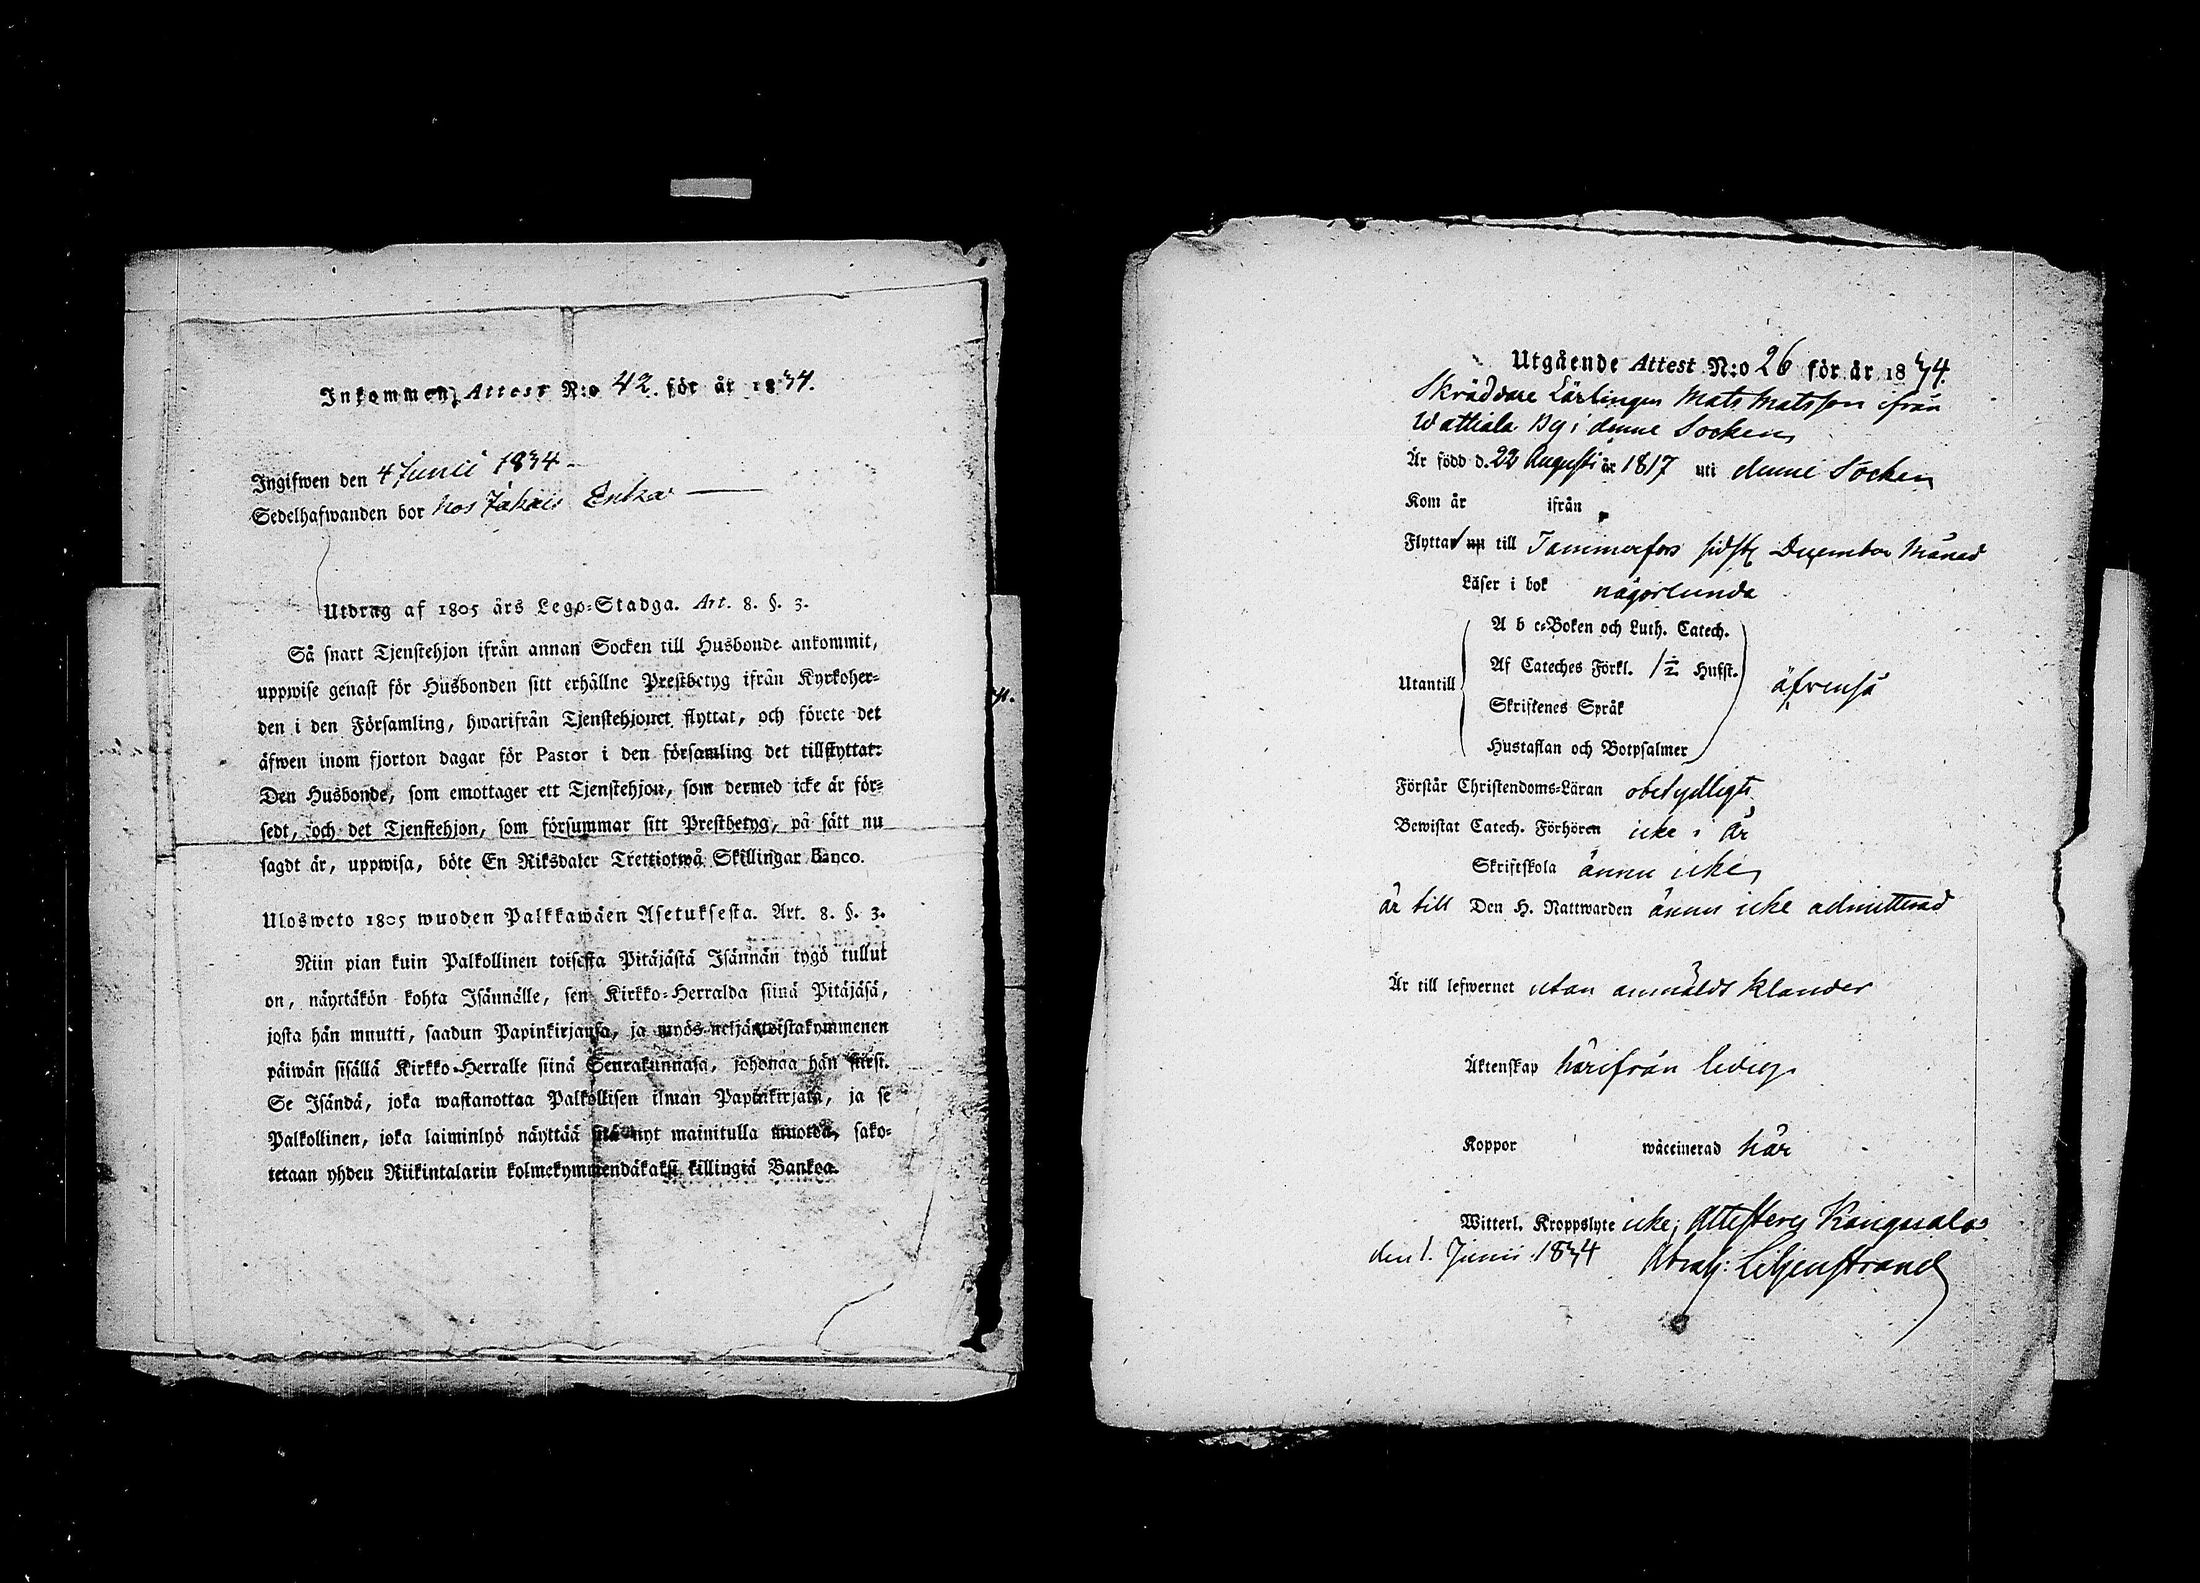 Inkommen Attest N:o 42. för år 1834.
Ingifwen den 4 Junii 1834
Sedelhafwanden bor hos Enka
Utdrag af 1805 års Lego-Stadga. Art. 8. §. 3.
Så snart Tjenstehjon ifrån annan Socken till Husbonde ankommit,
uppwise genast för Husbonden sitt erhållne Prestbetyg ifrån Kyrkoher-
den i den Församling, hwarifrån Tjenstehjonet flyttat, och förete det
äfwen inom fjorton dagar för Pastor i den församling det tillflyttat:
Den Husbonde, som emottager ett Tjenstehjon, som dermed icke är för-
sedt, och det Tjenstehjon, som försummar sitt Prestbetyg, på sätt nu
sagdt är, uppwisa, böte En Riksdaler Trettiotwå Skillingar Banco.
Ulosweto 1805 wuoden Palkkawäen Asetuksesta. Art. 8. §. 3.
Niin pian kuin Palkollinen toisesta Pitäjästä Isännän tygö tullut
on, näyttäkön kohta Isännälle, sen Kirkko-Herralda siinä Pitäjäsä,
josta hän muutti, saadun Papinkirjansa, ja myös neljäntoistakymmenen
päiwän sisällä Kirkko-Herralle siinä Seurakunnasa, johongа hän siirsi.
Se Isändä, joka wastanottaa Palkollisen ilman Papinkirjata, ja se
Palkollinen, joka laiminlyö näyttää sitä nyt mainitulla muotoa, sako-
tetaan yhden Riikintalarin kolmekymmendäkaksi killingiä Bankoa.
Utgående Attest N:o 26 för år 1834.
Skräddare Lärlingen Mats Matsson ifrån
Wattiala By i denne Socken
Är född d. 22 Augusti år 1817 uti denne Socken
Kom år ifrån
Flyttar nu till Tammerfors sidst December Månad
Läser i bok någorlunda
A b c-Boken och Luth. Catech.
Af Cateches Förkl. 1/2 Hufst.
Utantill äfvenså
Skriftenes Språk
Hustaflan och Botpsalmer
Förstår Christendoms-Läran obetydligt
Bewistat Catech. Förhören icke i år
Skriftskola ännu icke
är till Den H. Nattwarden ännu icke admitterad
Är till lefwernet utan anmäldt klander
Äktenskap härifrån ledig.
Koppor wäccinerad här
Witterl. Kroppslyte icke; Attesteras Kangasala
den 1. Junii 1834 Abrah: Liljenstrand